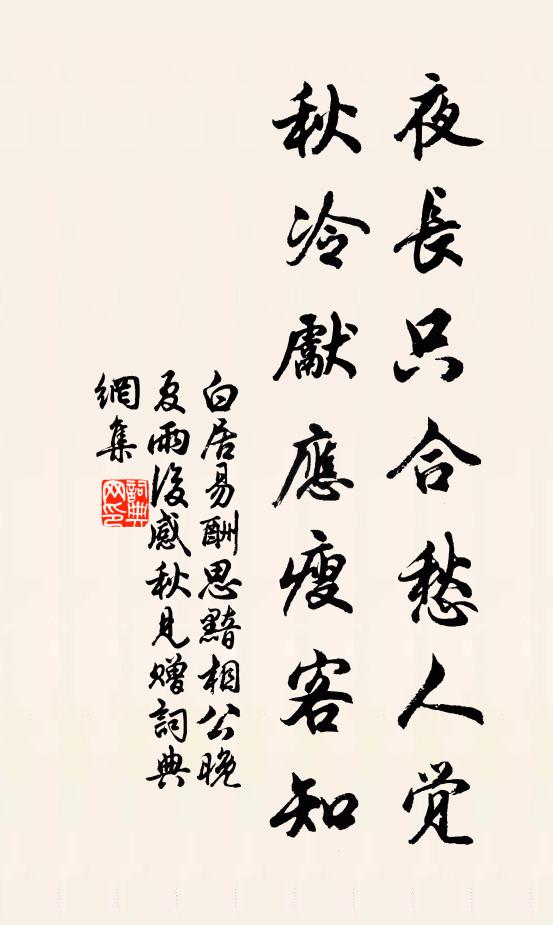 夜長只合愁人觉
秋冷獻應瘦客知
白居易酬思黯相公晚
夏雨後感秋见贈詞典
網集
詞典
网印